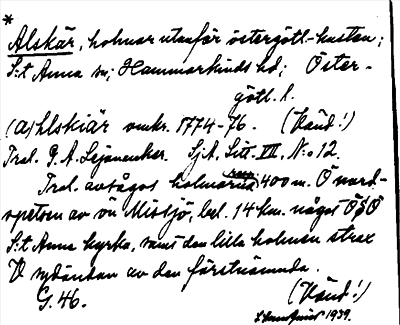 *
Alskär, holmar utanför östergötl-kusten;
S:t Anna sn; Hammarkinds hd; Öster-
götl. l.
(A)hlskiär omkr. 1774-76. (Vänd!)
Trol. G. A. Lejonancker. Sj.A. Litt. VII, N:o 12.
Trol. avsågos holmarna 400 m. Ö nord-
spetsen av ön Missjö, bel. 14 km. något ÖSÖ
S:t Anna kyrka, samt den lilla holmen strax
V sydändan av den förstnämnda.
G. 46. (Vänd!)
1939.